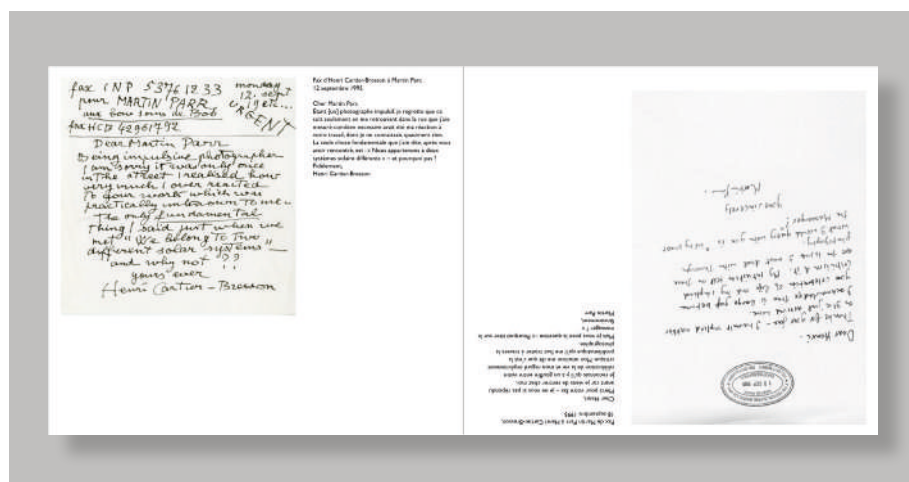 monday
pour MARTIN PARR 12. sept
aux bons soins de
URGENT
fax HCB 42961792
Dear Martin Parr
Being impulsive photographer
I am sorry it was only once
in the street I realised how
very much I over reacted
to your work which was
practically unknown to me.
The only fundamental
thing I said just when we
met "We belong to two
different solar systems"
and why not ??
yours ever
Henri Cartier-Bresson
Fax d'Henri Cartier-Bresson à Martin Parr,
12 septembre 1995
Cher Martin Parr,
Étant [un] photographe impulsif, je regrette que ce
soit seulement en me retrouvant dans la rue que j'aie
mesuré combien excessive avait été ma réaction à
votre travail, dont je ne connaissais quasiment rien.
La seule chose fondamentale que j'aie dite, après vous
avoir rencontré, est : « Nous appartenons à deux
systèmes solaires différents » – et pourquoi pas ?
Fidèlement,
Henri Cartier-Bresson
Fax de Martin Parr à Henri Cartier-Bresson,
18 septembre 1995
Cher Henri,
Merci pour votre fax – je ne vous ai pas répondu
avant car je viens de rentrer chez moi.
Je reconnais qu'il y a un gouffre entre votre
célébration de la vie et mon regard implicitement
critique. Mon intuition me dit que c'est la
problématique qu'il me faut traiter à travers la
photographie.
Mais je vous pose la question : « Pourquoi tirer sur le
messager ? »
Sincèrement,
Martin Parr
Dear Henri -
Thanks for your fax - I haven't replied earlier
as I've just arrived home.
I acknowledge there is a large gap between
your celebration of life and my implied
criticism of it. My
through
photography.
What I would query with you is "Why shoot
the Messenger"?
Yours sincerely